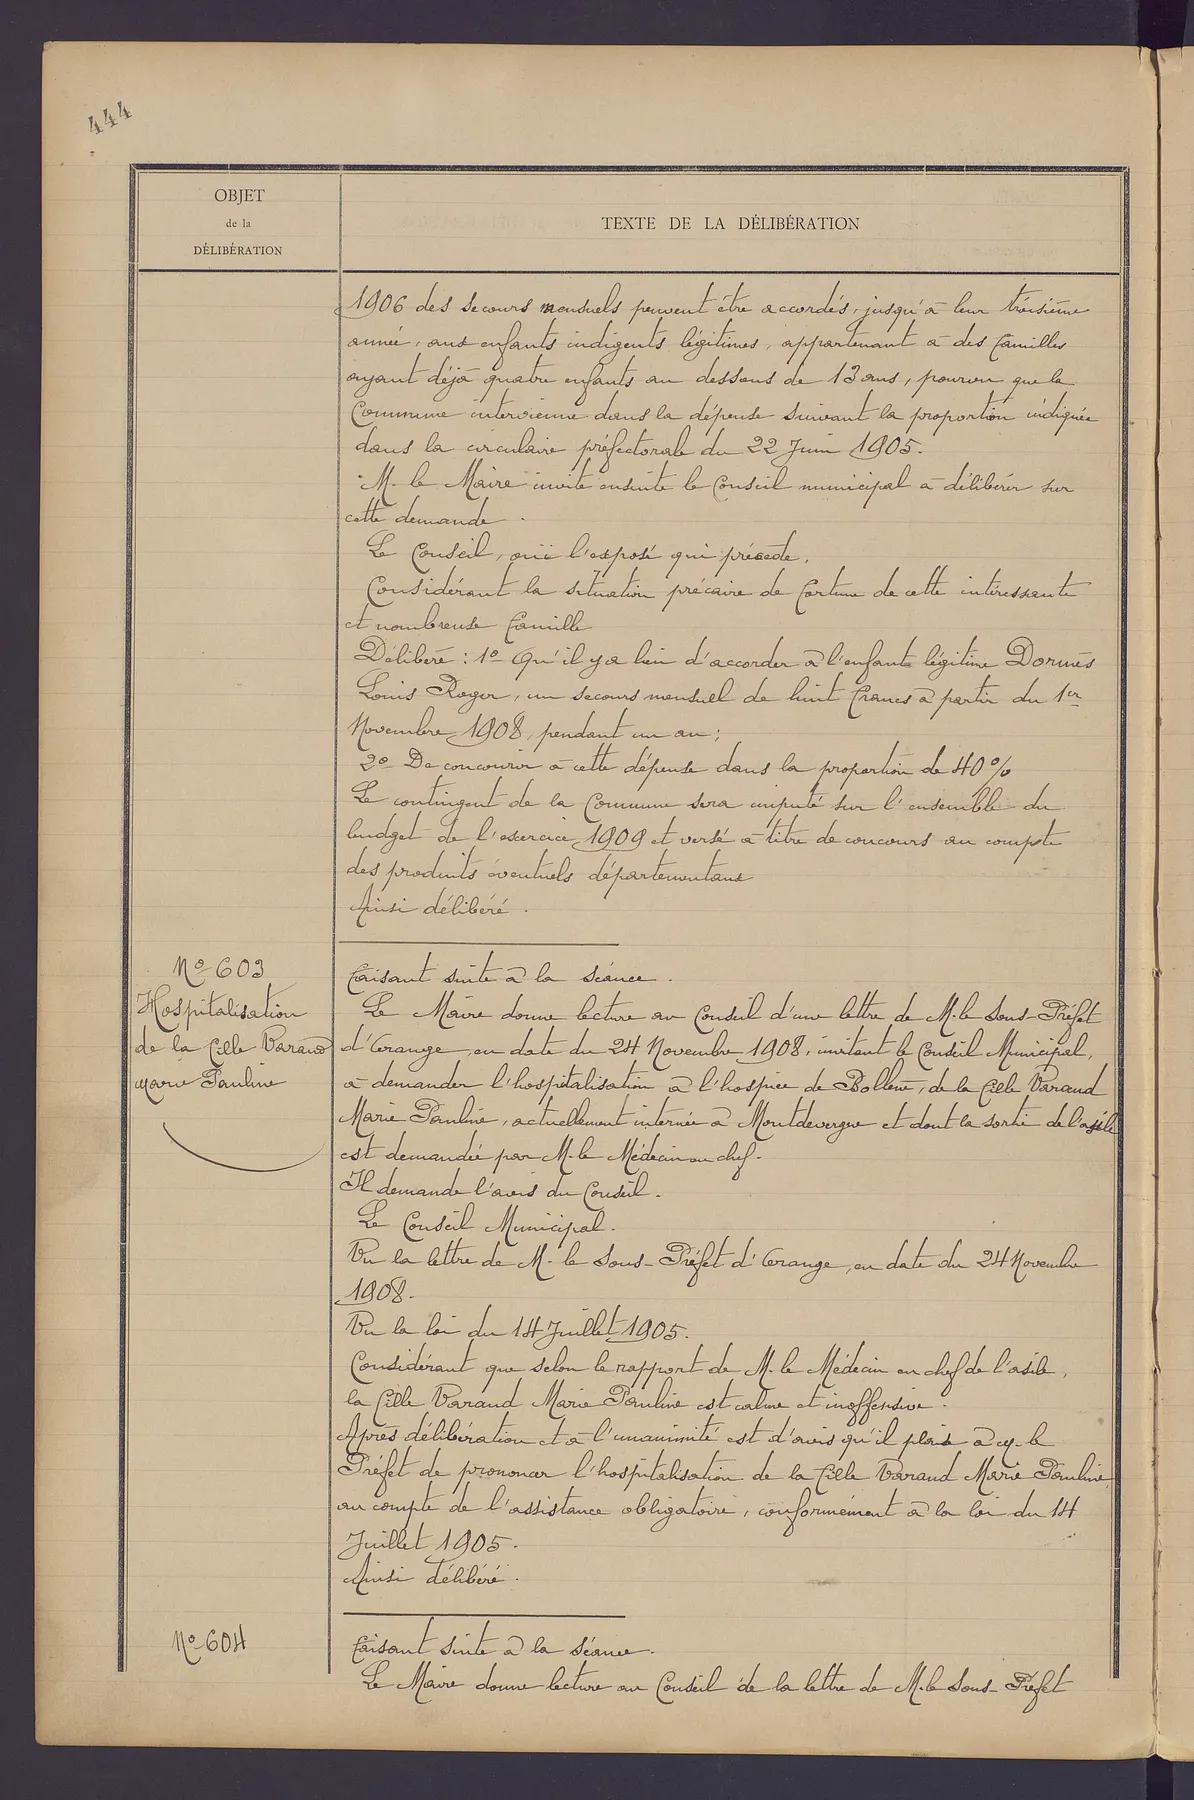 444
OBJET
de la
DÉLIBÉRATION
TEXTE DE LA DÉLIBÉRATION
1906 des secours mensuels peuvent être accordés, jusqu'à leur troisième
année, aux enfants indigents légitimes, appartenant à des familles
ayant déjà quatre enfants au dessous de 13 ans, pourvu que la
Commune intervienne dans la dépense suivant la proportion indiquée
dans la circulaire préfectorale du 22 Juin 1905.
M. le Maire invite ensuite le Conseil municipal à délibérer sur
cette demande.
Le Conseil, ouï l'exposé qui précède,
Considérant la situation précaire de fortune de cette intéressante
et nombreuse famille
Délibère : 1º Qu'il y a lieu d'accorder à l'enfant légitime Dormès
Louis Roger, un secours mensuel de huit francs à partir du 1er
Novembre 1908, pendant un an ;
2º De concourir à cette dépense dans la proportion de 40 %
Le contingent de la Commune sera imputé sur l'ensemble du
budget de l'exercice 1909 et versé à titre de concours au compte
des produits éventuels départementaux
Ainsi délibéré.
Nº 603
Hospitalisation
de la fille Varaud
Marie Pauline
Faisant suite à la séance.
Le Maire donne lecture au Conseil d'une lettre de M. le Sous-Préfet
d'Orange, en date du 24 Novembre 1908, invitant le Conseil Municipal,
à demander l'hospitalisation à l'hospice de Bollène, de la fille Varaud
Marie Pauline, actuellement internée à Montdevergue et dont la sortie de l'asile
est demandée par M. le Médecin en chef.
Il demande l'avis du Conseil.
Le Conseil Municipal.
Vu la lettre de M. le Sous-Préfet d'Orange, en date du 24 Novembre
1908.
Vu la loi du 14 Juillet 1905.
Considérant que selon le rapport de M. le Médecin en chef de l'asile,
la fille Varaud Marie Pauline est calme et inoffensive.
Après délibération et à l'unanimité est d'avis qu'il plaise à M. le
Préfet de prononcer l'hospitalisation de la fille Varaud Marie Pauline,
au compte de l'assistance obligatoire, conformément à la loi du 14
Juillet 1905.
Ainsi délibéré.
Nº 604
Faisant suite à la séance.
Le Maire donne lecture au Conseil de la lettre de M. le Sous-Préfet